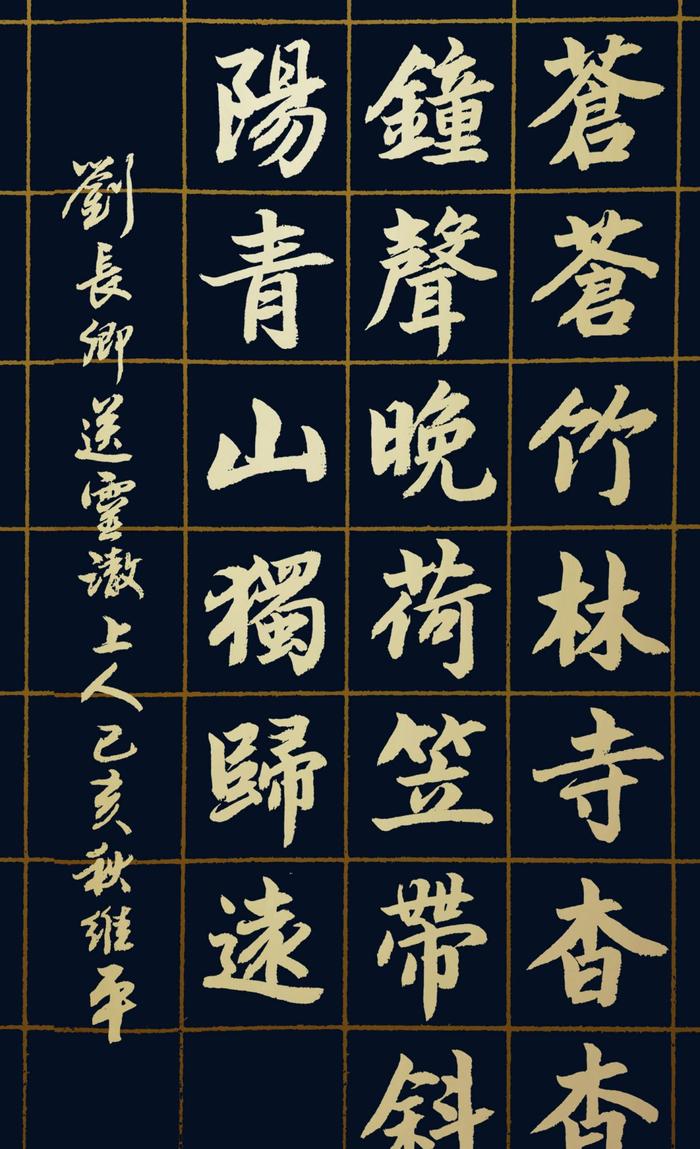 蒼蒼竹林寺杳杳
鐘聲晚荷笠帶斜
陽青山獨歸遠
劉長卿送靈澈上人己亥秋維平